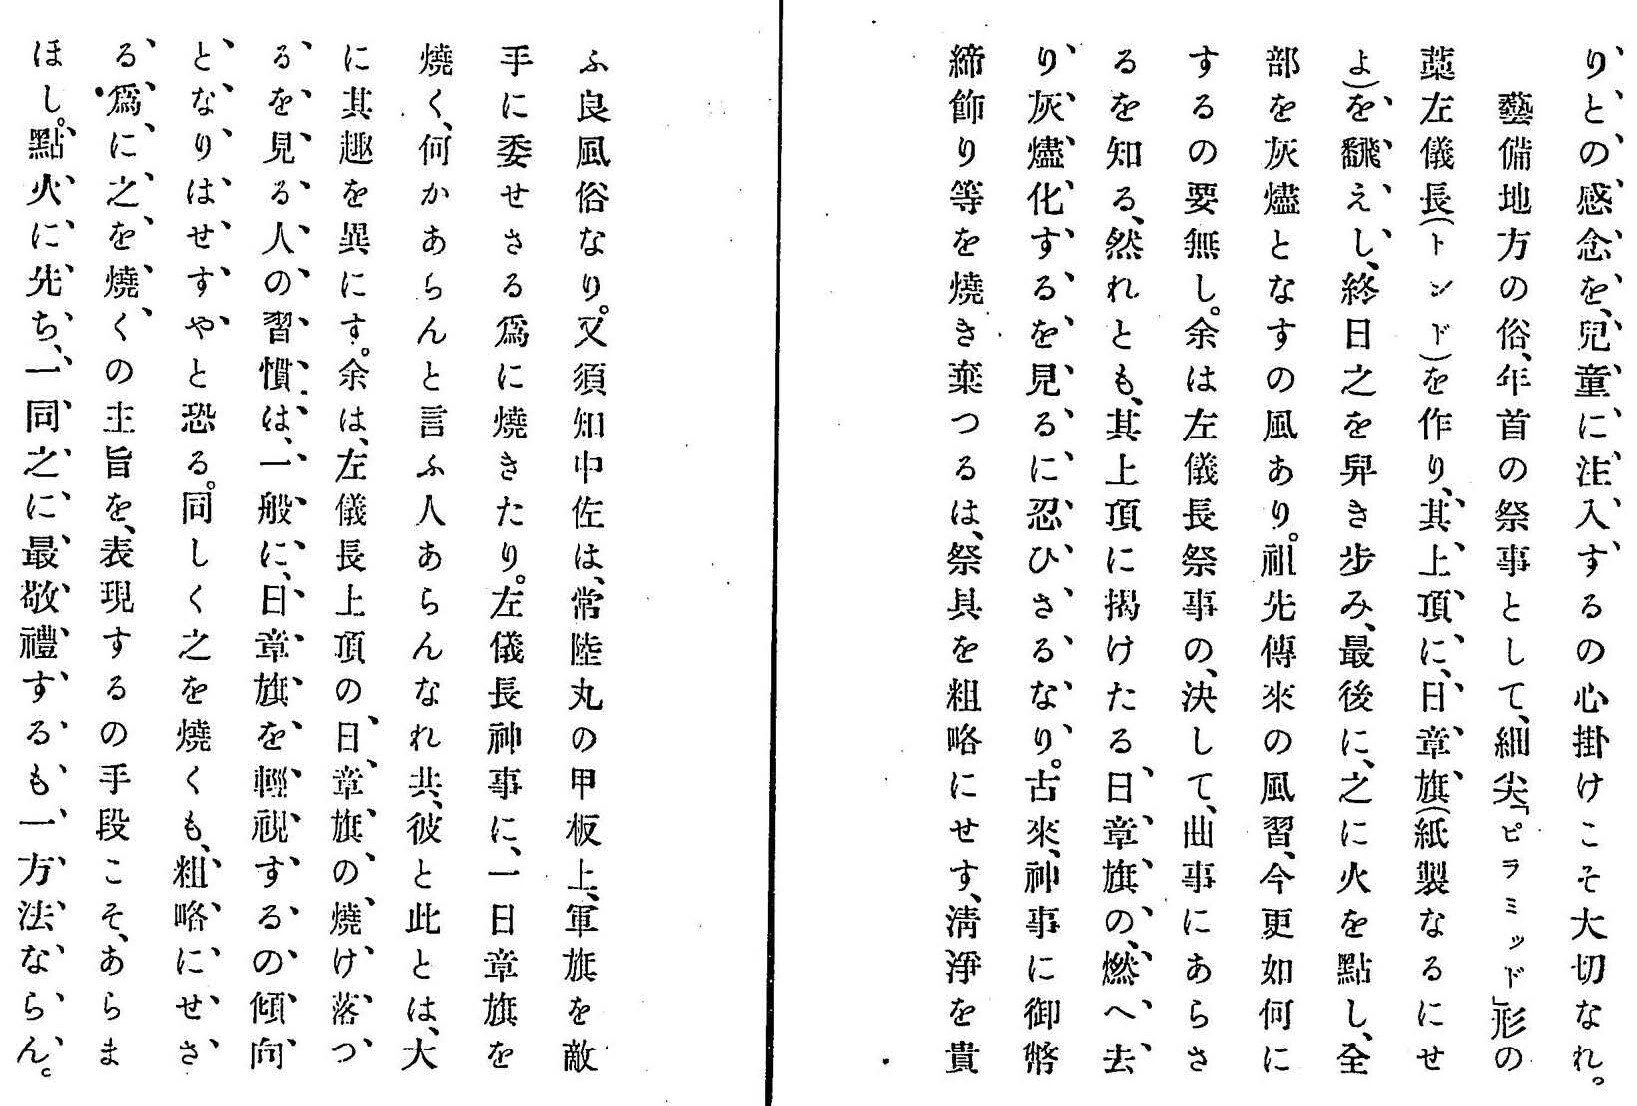 り、との感念を、兒童に注入するの心掛けこそ大切なれ。
藝備地方の俗、年首の祭事として、細尖「ピラミッド」形の
藁左儀長(トンド)を作り、其上頂に、日章旗(紙製なるにせ
よ)を飜えし、終日之を舁き步み、最後に、之に火を點し、全
部を灰燼となすの風あり。祖先傳來の風習、今更如何に
するの要無し。余は左儀長祭事の、決して、曲事にあらさ
るを知る、然れとも、其上頂に揭けたる日章旗の、燃へ去
り、灰燼化するを見るに忍ひさるなり。古來、神事に御幣
締飾り等を燒き棄つるは、祭具を粗略にせす、淸淨を貴
ふ良風俗なり。又須知中佐は、常陸丸の甲板上、軍旗を敵
手に委せさる爲に燒きたり。左儀長神事に、一日章旗を
燒く、何かあらんと言ふ人あらんなれ共、彼と此とは、大
に其趣を異にす。余は、左儀長上頂の日章旗の燒け落つ
るを見る人の習慣は、一般に、日章旗を輕視するの傾向
となりはせすやと恐る。同しく之を燒くも、粗略にせさ
る爲に之を燒くの主旨を、表現するの手段こそ、あらま
ほし。點火に先ち、一同之に最敬禮するも一方法ならん。